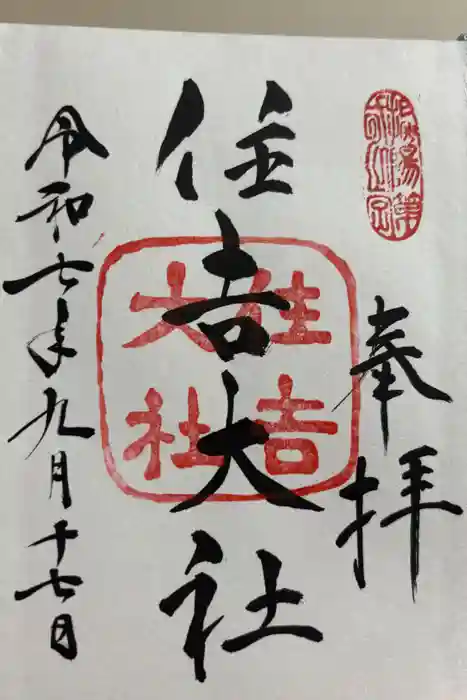 奉拝
住吉大社
住吉
大社
令和七年九月十七日